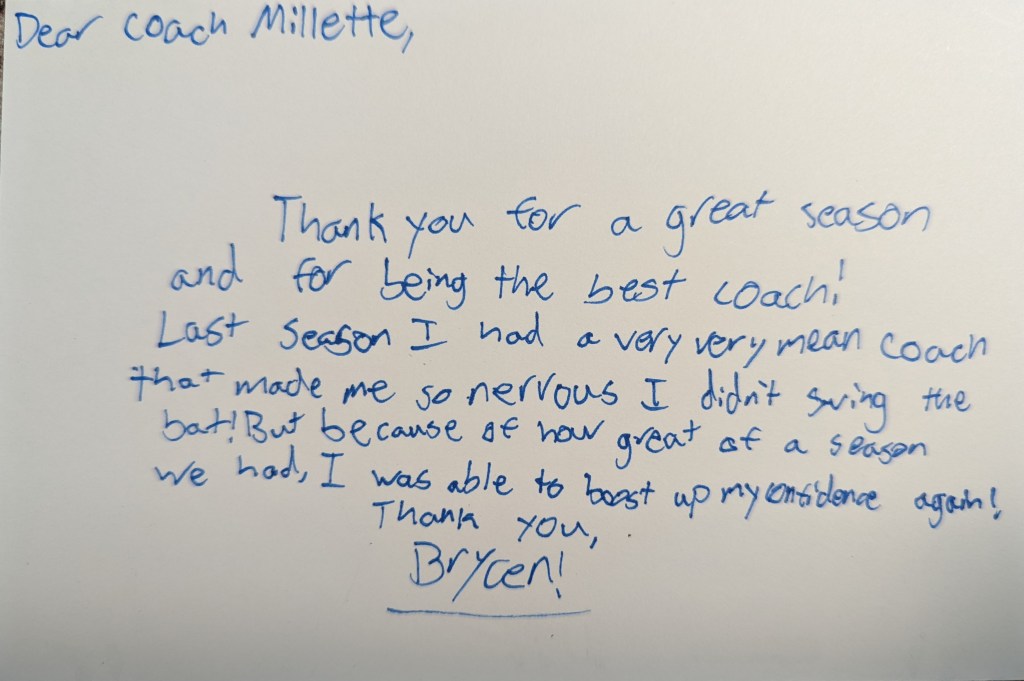 Dear Coach Millette,
Thank you for a great season
and for being the best coach!
Last season I had a very very mean coach
that made me so nervous I didn't swing the
bat! But because of how great of a season
we had, I was able to boost up my confidence again!
Thank you,
Brycen!